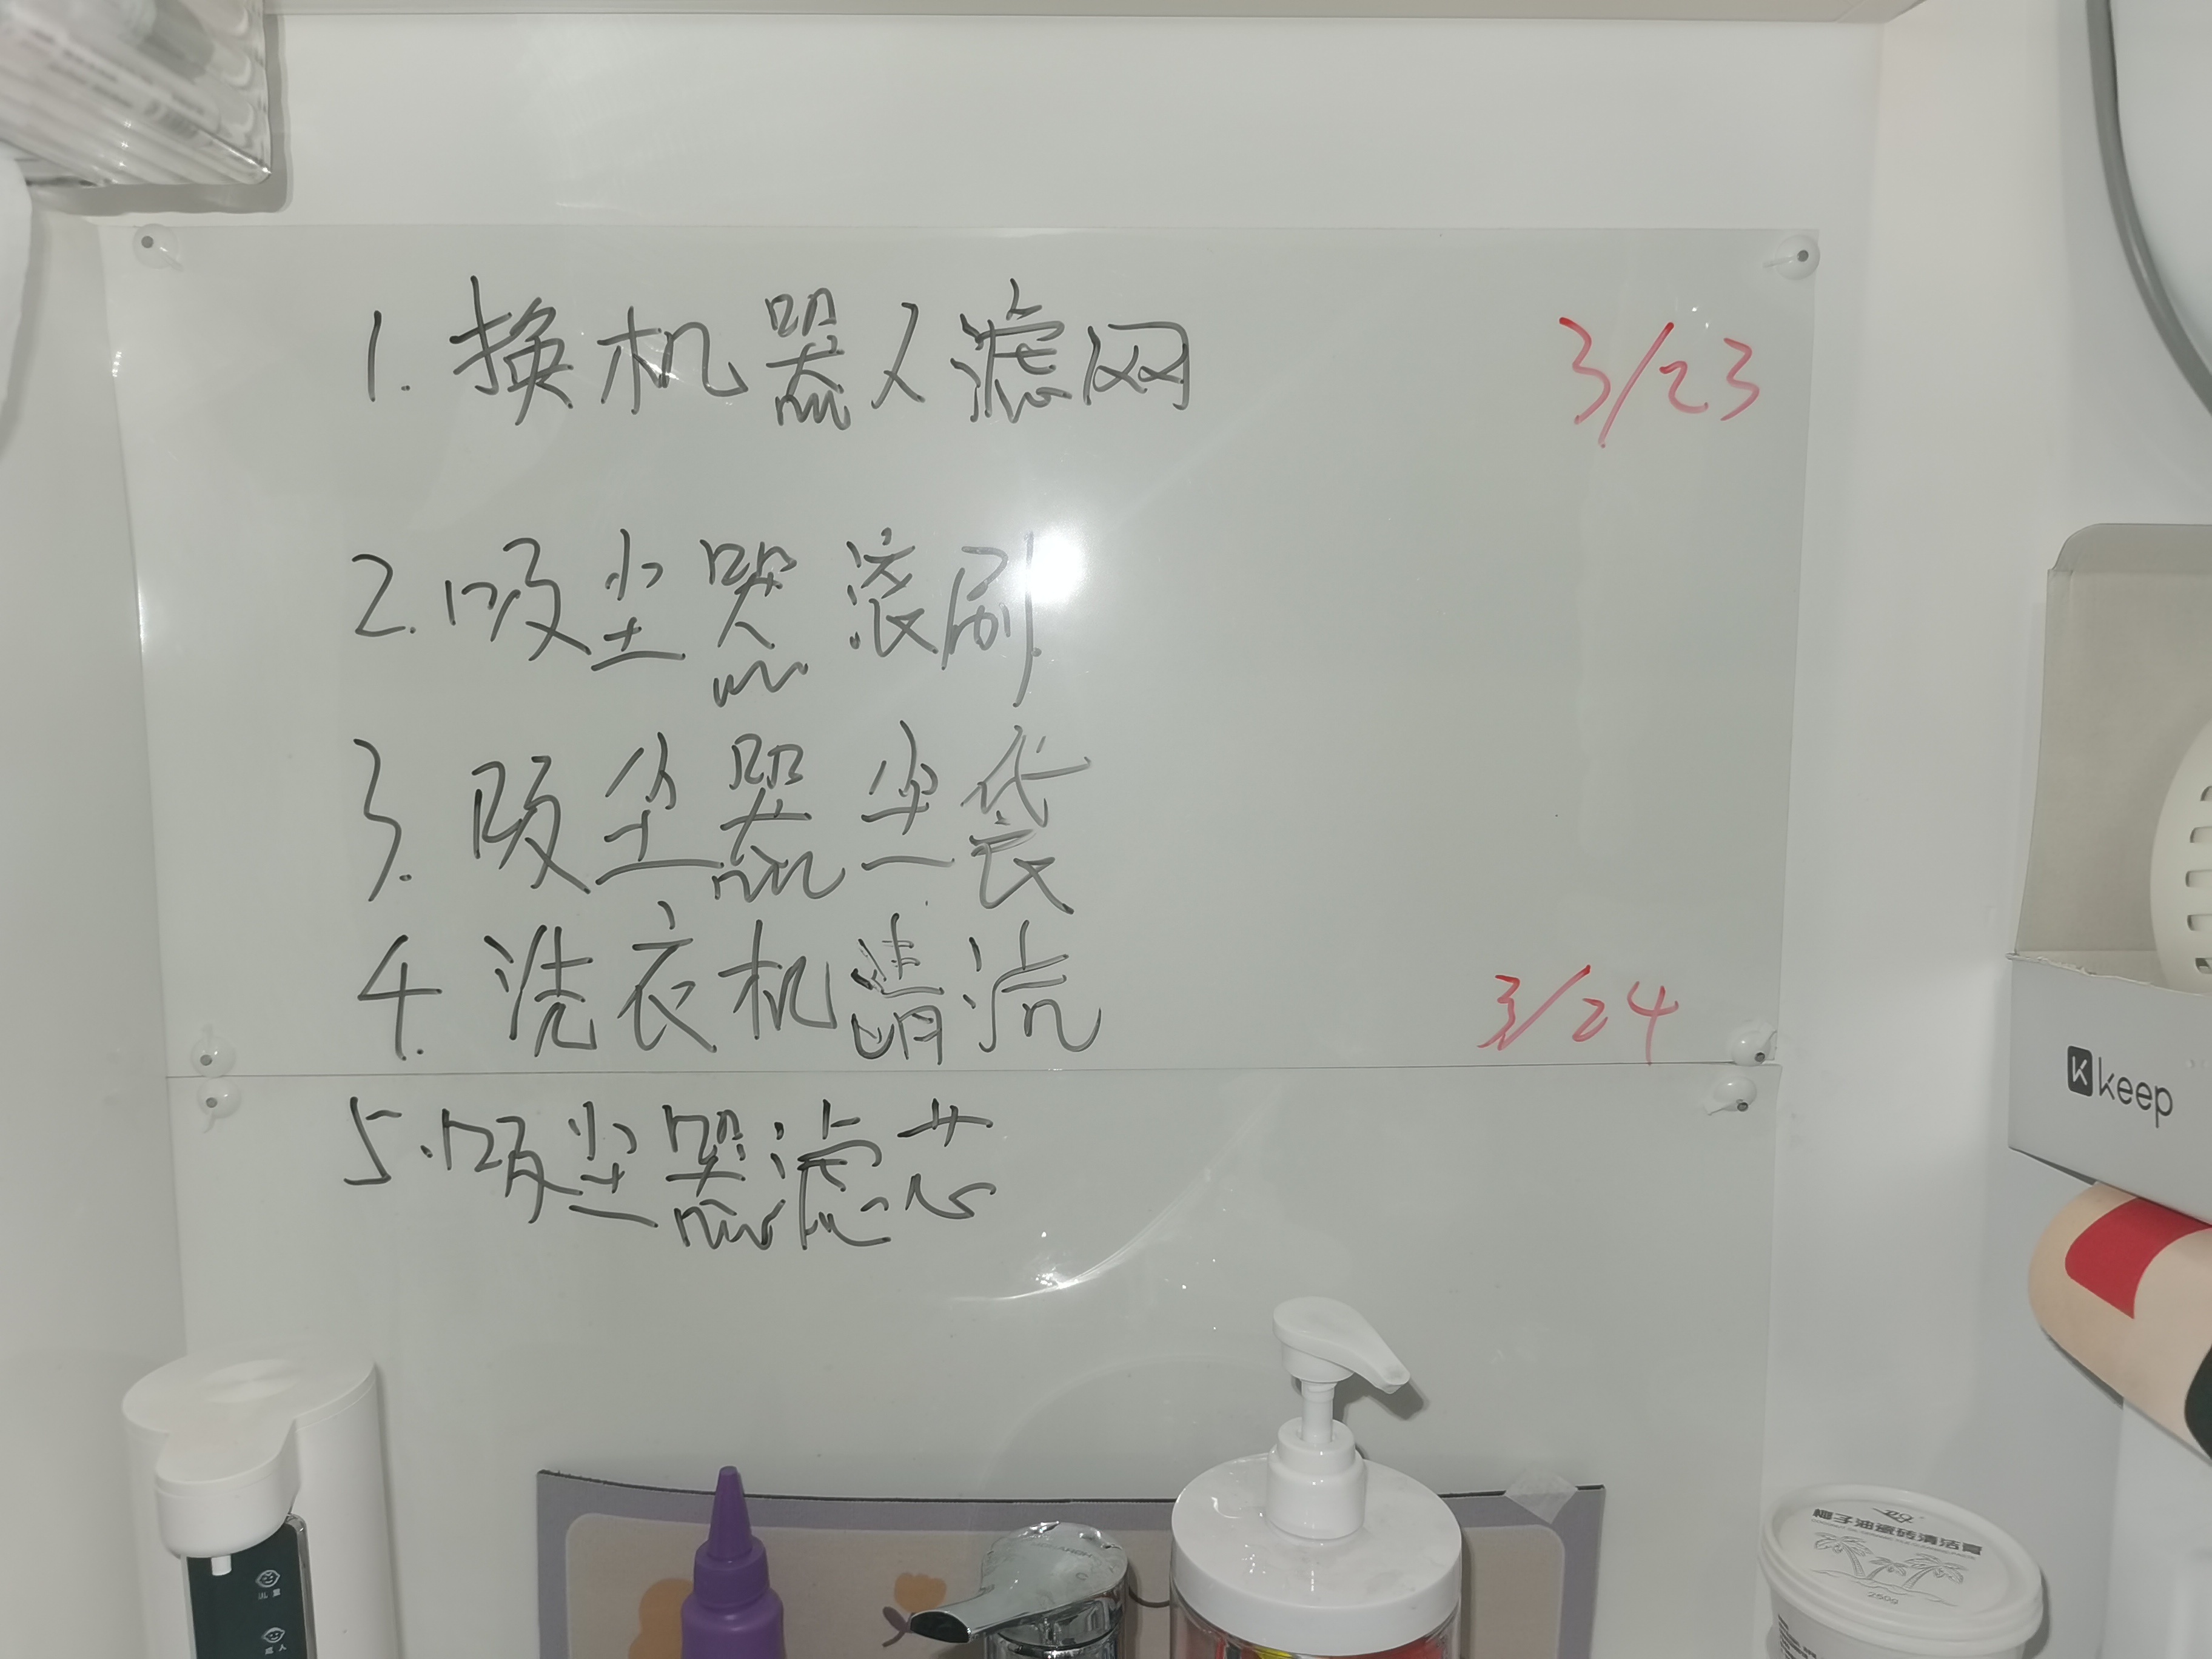 1. 换机器人滤网 3/23
2. 吸尘器滚刷
3. 吸尘器尘袋
4. 洗衣机清洗 3/24
5. 吸尘器滤芯
keep
椰子油瓷砖清洁膏
250g
儿童
成人